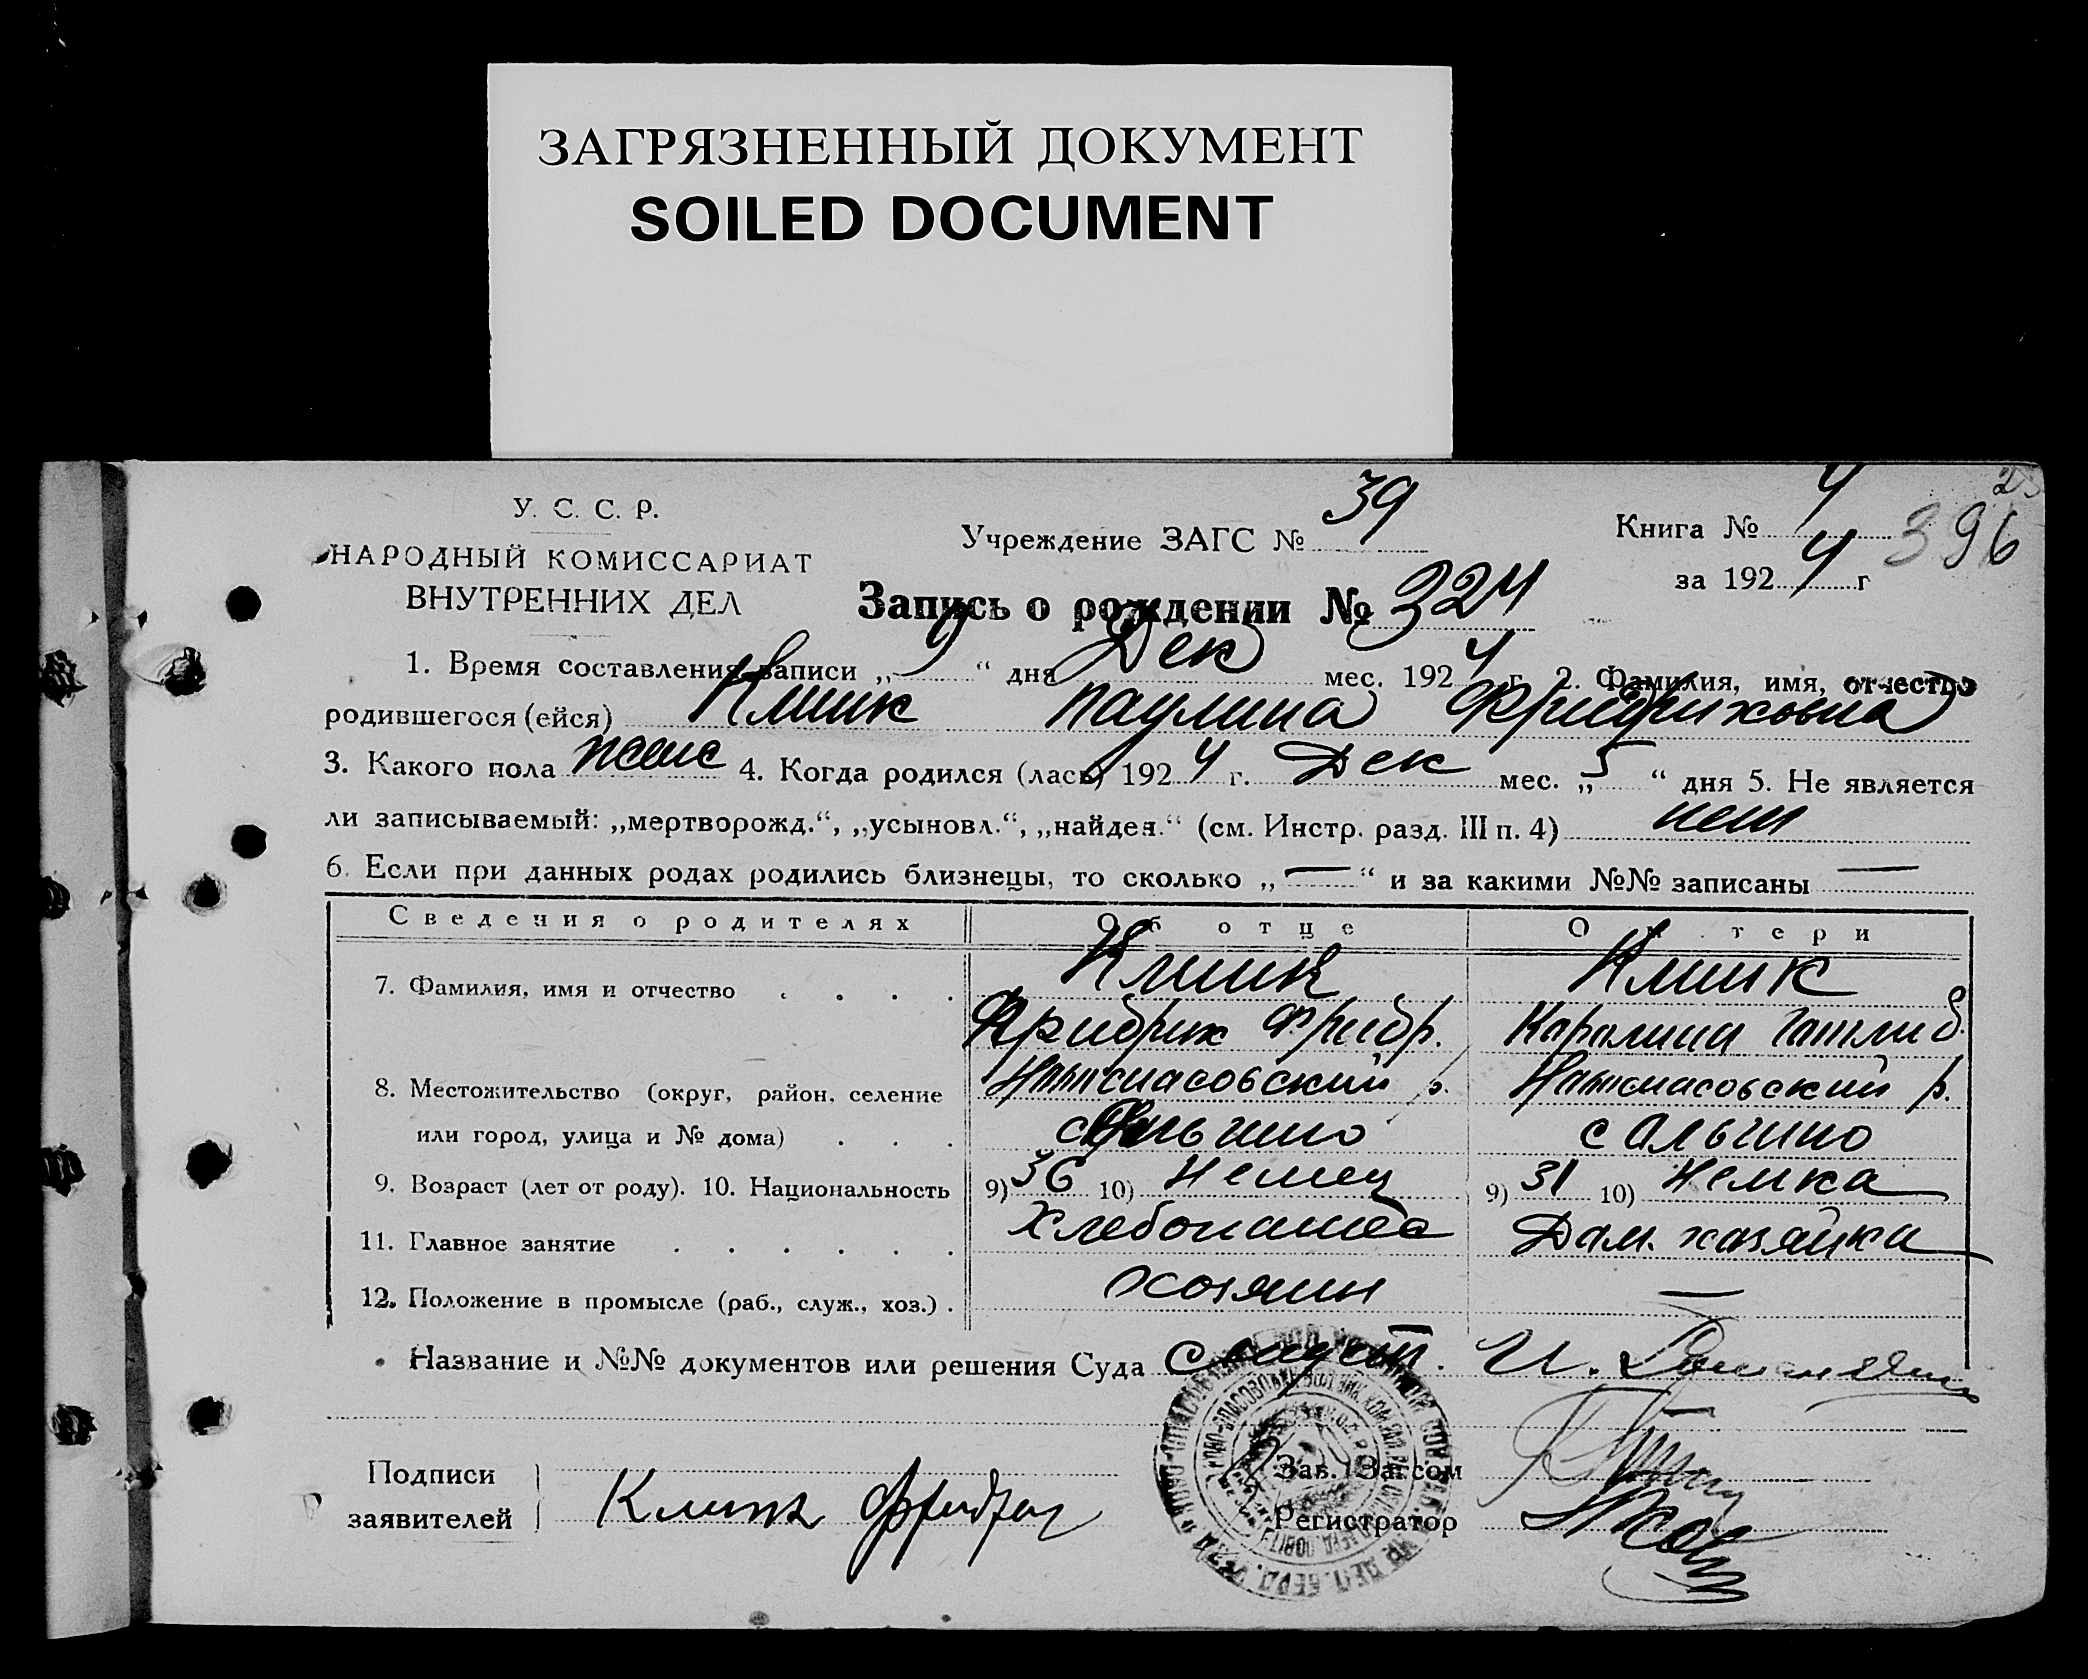 ЗАГРЯЗНЕННЫЙ ДОКУМЕНТ
SOILED DOCUMENT
У. С. С. Р.
НАРОДНЫЙ КОМИССАРИАТ
ВНУТРЕННИХ ДЕЛ
Учреждение ЗАГС № 39
Книга № 4
396
за 1924 г
Запись о рождении № 324
1. Время составления записи „9“ дня Дек мес. 1924 г. 2. Фамилия, имя, отчество
родившегося (ейся) Клинк Паулина Фридриховна
3. Какого пола женс 4. Когда родился (лась) 1924 г. Дек мес. „5“ дня 5. Не является
ли записываемый: „мертворожд.“, „усыновл.“, „найден.“ (см. Инстр. разд. III п. 4) нет
6. Если при данных родах родились близнецы, то сколько „—“ и за какими №№ записаны —
Сведения о родителях Об отце О матери
7. Фамилия, имя и отчество . . . . Клинк Клинк
Фридрих Фридр. Каролина Гатлиб.
8. Местожительство (округ, район, селение р. р.
или город, улица и № дома) . . . с Ольгино с Ольгино
9. Возраст (лет от роду). 10. Национальность 9) 36 10) Немец 9) 31 10) Немка
11. Главное занятие . . . . . . Хлебопашес Дом. хазяйка
12. Положение в промысле (раб., служ., хоз.) . хозяин —
Название и №№ документов или решения Суда И.
Подписи
заявителей
Клинк Фридрих
Зав. Загсом
Регистратор